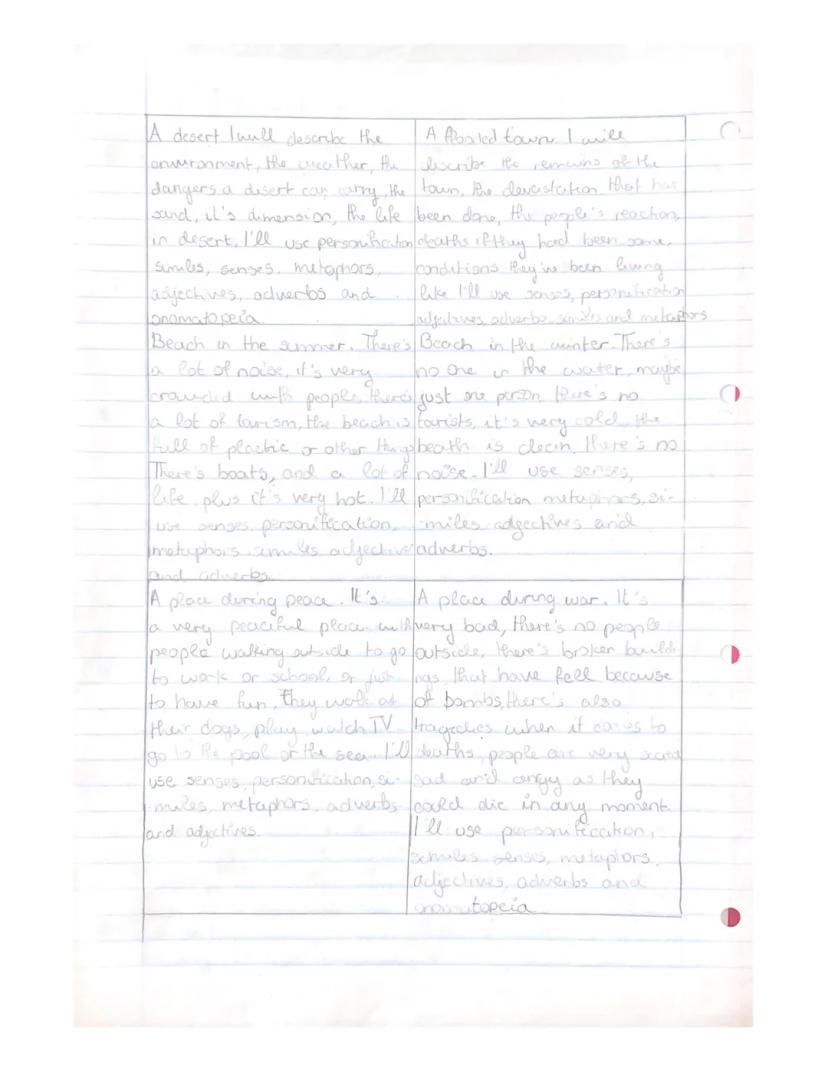 A desert I will describe the
environment, the weather, the
dangers a disert can carry, the
sand, it's dimension, the life
in desert. I'll use personification
similes, senses, metaphors,
adjectives, adverbs and
onomatopeia.
A flooded town. I will
discribe the remains of the
town, the devastation that has
been done, the people's reaction,
deaths if they had been some,
conditions they've been living
like I'll use senses, personification
adjectives, adverbs, similes and metaphors
Beach in the summer. There's
a lot of noise, it's very
crowded with people, there's
a lot of tourism, the beach is
full of plastic or other things
There's boats, and a lot of
life plus it's very hot. I'll
use senses, personification,
metaphors, similes, adjectives
and adverbs.
Beach in the winter. There's
no one in the water, maybe
just one person, there's no
tourists, it's very cold, the
beath is clean, there's no
noise. I'll use senses,
personification metaphors, si-
miles adjectives and
adverbs.
A place during peace. It's
a very peaciful place with
people walking outside to go
to work or school, or just
to have fun. They walk
their dogs, play, watch TV
go to the pool or the sea. I'll
use senses, personification, si-
miles, metaphors, adverbs
and adjectives.
A place during war. It's
very bad, there's no people
outside, there's broken build-
ings, that have fell because
of bombs, there's also
tragedies when it comes to
deaths, people are very scared
sad and angy as they
could die in any moment
I'll use personification,
similes senses, metaphors,
adjectives, adverbs and
onomatopeia